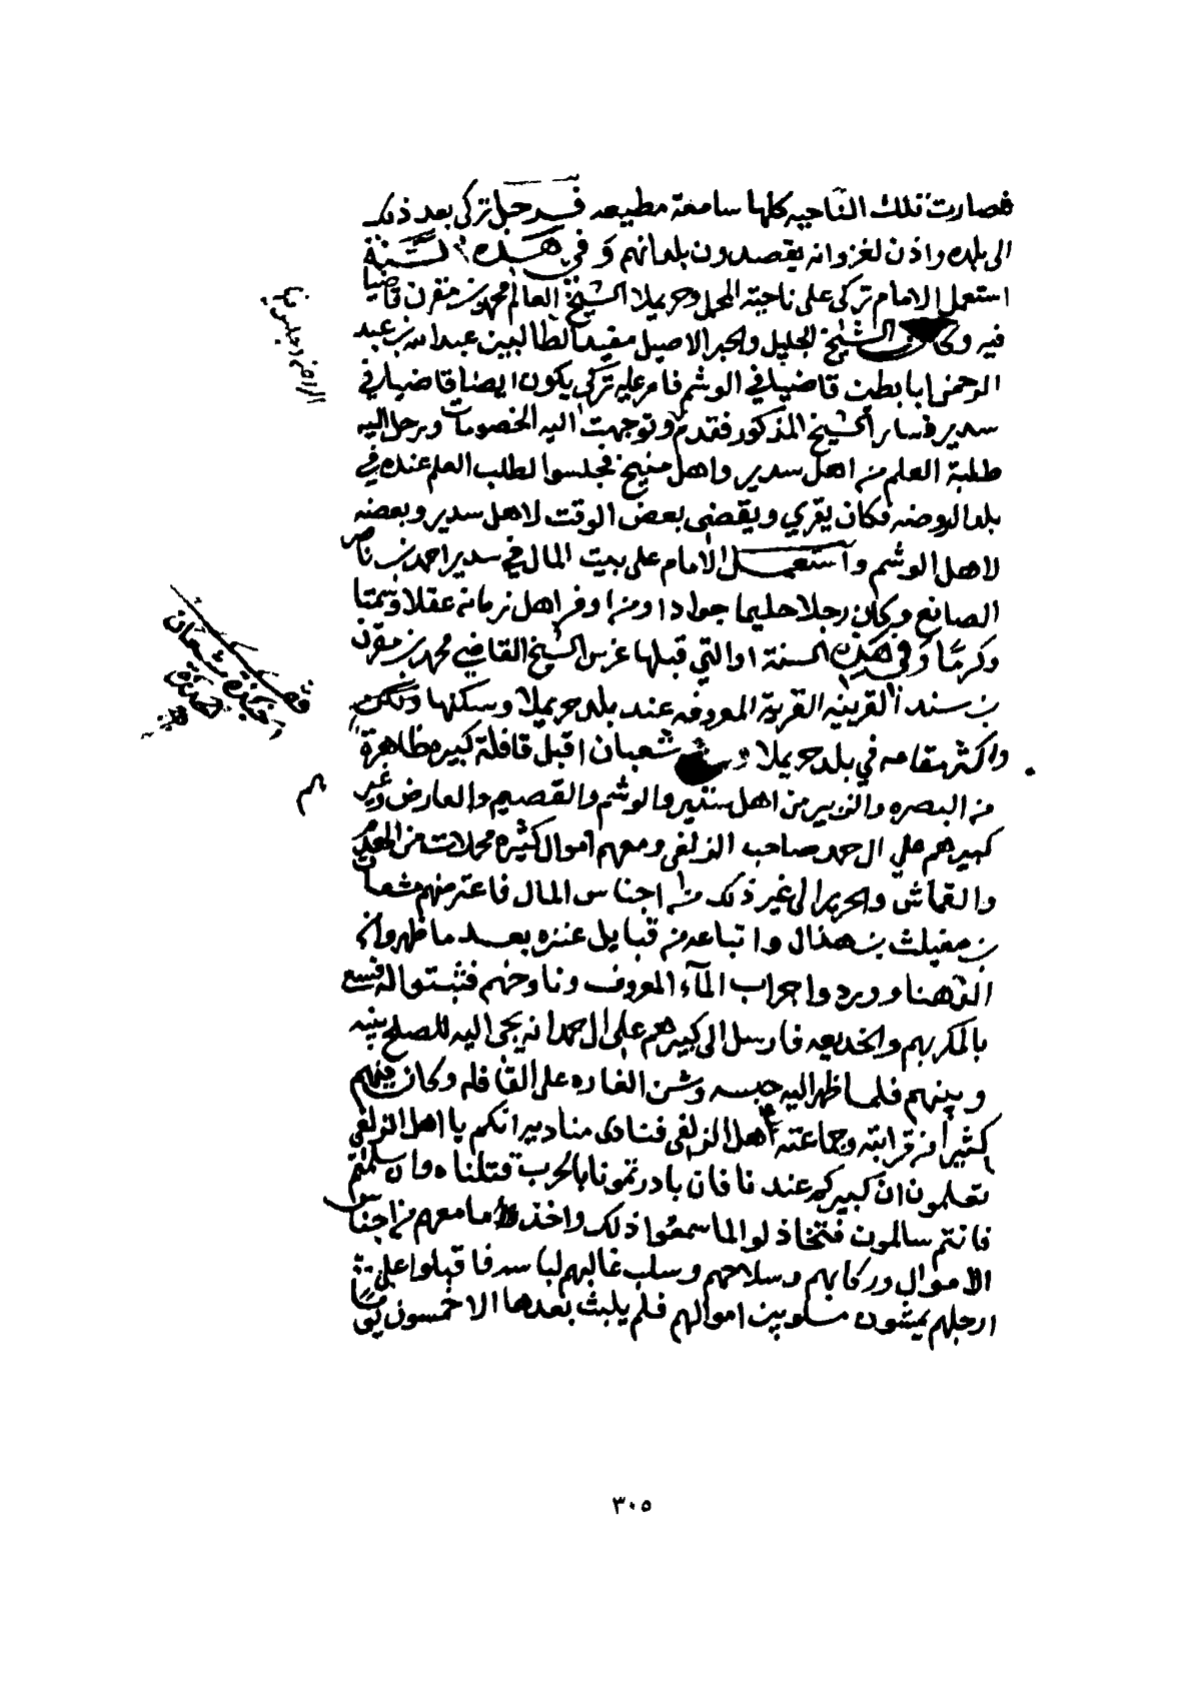 فصارت تلك الناحيه كلها سامعة مطيعه فرحل تركي بعد ذلك
الى بلده واذن لغزوانه يقصدون بلدانهم وفي هذه السنة
استعمل الامام تركي على ناحية المحمل وحريملا الشيخ العالم محمد بن مقرن قاضيا
فيه وكان الشيخ الجليل والحبر الاصيل مفيد الطالبين عبدالله بن عبد
الرحمن ابا بطين قاضيا في الوشم فامر عليه تركي يكون ايضا قاضيا في
سدير فسار الشيخ المذكور فقدم وتوجهت اليه الخصومات ورحل اليه
طلبة العلم من اهل سدير واهل منيخ فجلسوا لطلب العلم عنده في
بلد الروضه فكان يقري ويقضي بعض الوقت لاهل سدير وبعضه
لاهل الوشم واستعمل الامام على بيت المال في سدير احمد بن ناصر
الصانع وكان رجلا حليما جوادا ومن اوفر اهل زمانه عقلا وسمتا
وكرما وفي هذه السنة او التي قبلها غرس الشيخ القاضي محمد بن مقرن
بن سند القرينه القرية المعروفه عند بلد حريملا وسكنها ولكن
واكثر مقامه في بلد حريملا وفي شعبان اقبل قافلة كبيره ظاهرة
من البصره والزبير من اهل سدير والوشم والقصيم والعارض وغيرهم
كبيرهم علي ال حمد صاحب الزلفى ومعهم اموال كثيره محملات من الهدم
والقماش والحرير الى غير ذلك من اجناس المال فاعترضهم مشعان
بن مغيليث بن هذال واتباعه من قبايل عنزه بعد ما ظهروا من
الدهنا ووردوا جراب الماء المعروف وناوخهم فثبتوا له فسع
بالمكر بهم والخديعه فارسل الى كبيرهم علي ال حمد انه يجي اليه للصلح بينه
وبينهم فلما ظهر اليه حبسه وشن الغاره على القافله وكان فيهم
كثيرا من قرابته وجماعته اهل الزلفى فنادى مناديه انكم يا اهل الزلفي
تعلمون ان كبيركم عندنا فان بادرتمونا بالحرب قتلناه وان سلمتم
فانتم سالمون فتخاذلوا لما سمعوا ذلك واخذ ما معهم من اجناس
الاموال وركابهم وسلاحهم وسلب غالبهم لباسه فاقبلوا على
ارجلهم يمشون مسلوبين اموالهم فلم يلبث بعدها الا خمسون يوما
قصة مشعان
واخذة
٣٠٥